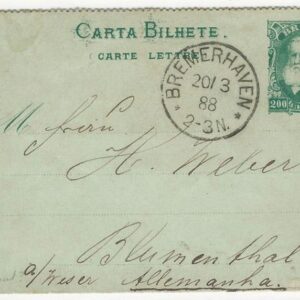 CARTA BILHETE.
CARTE LETTRE
BREMERHAVEN
20/3
88
2-3N.
200
Herrn
H. Weber
Blumenthal
a/Weser Allemanha.